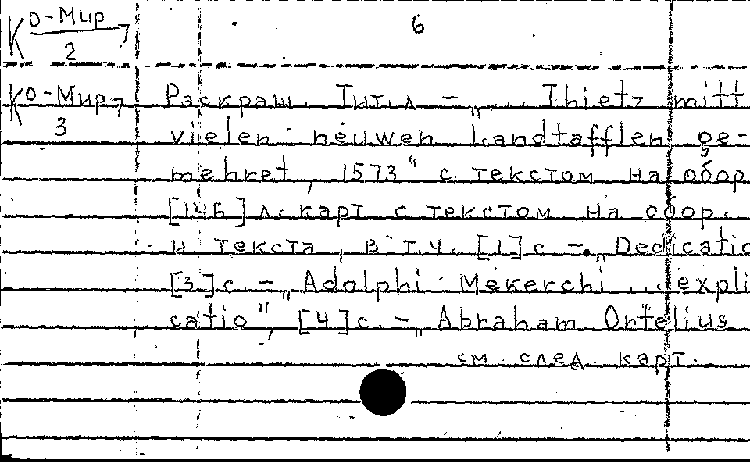 Ко-Мир 6
2
Ко-Мир Раскраш. Тит.л – „... Thietz mitt
3 vielen neuwen Landtafflen ge-
mehret, 1573" с текстом на обор
[146] л. карт с текстом на обор.
и текста, в т.ч. [1]с –„Dedicatio
[3]с –„Adolphi Mekerchi ... expli
catio", [4]с –„Abraham Ortelius
см. след. карт.